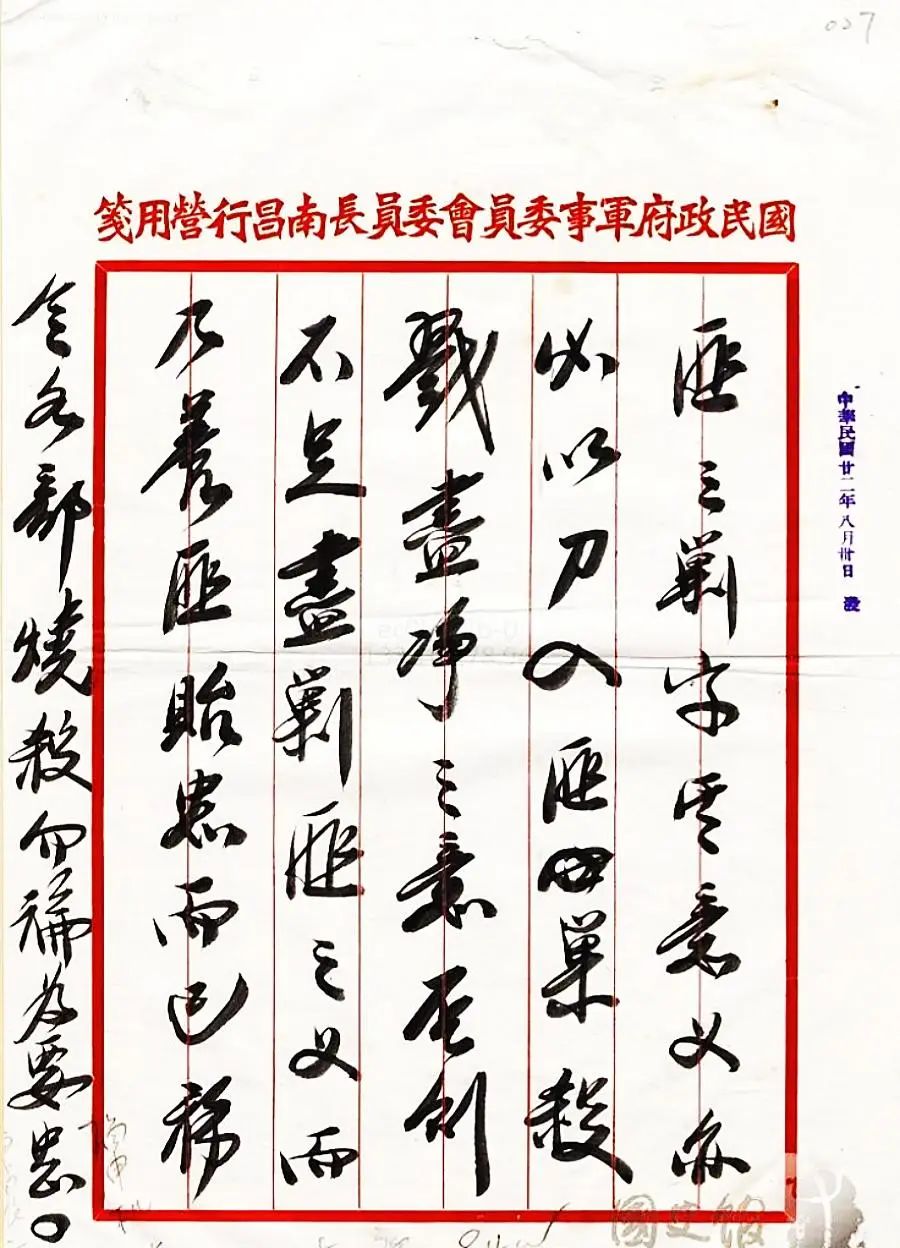 007
國民政府軍事委員會委員長南昌行營用箋
中華民國廿二年八月卅日
匪之剿字其意义亦
必以刀入匪巢殺
戮盡净之意否则
不足盡剿匪之义而
乃養匪貽患而已務
令各部燒殺勿为要
國史館